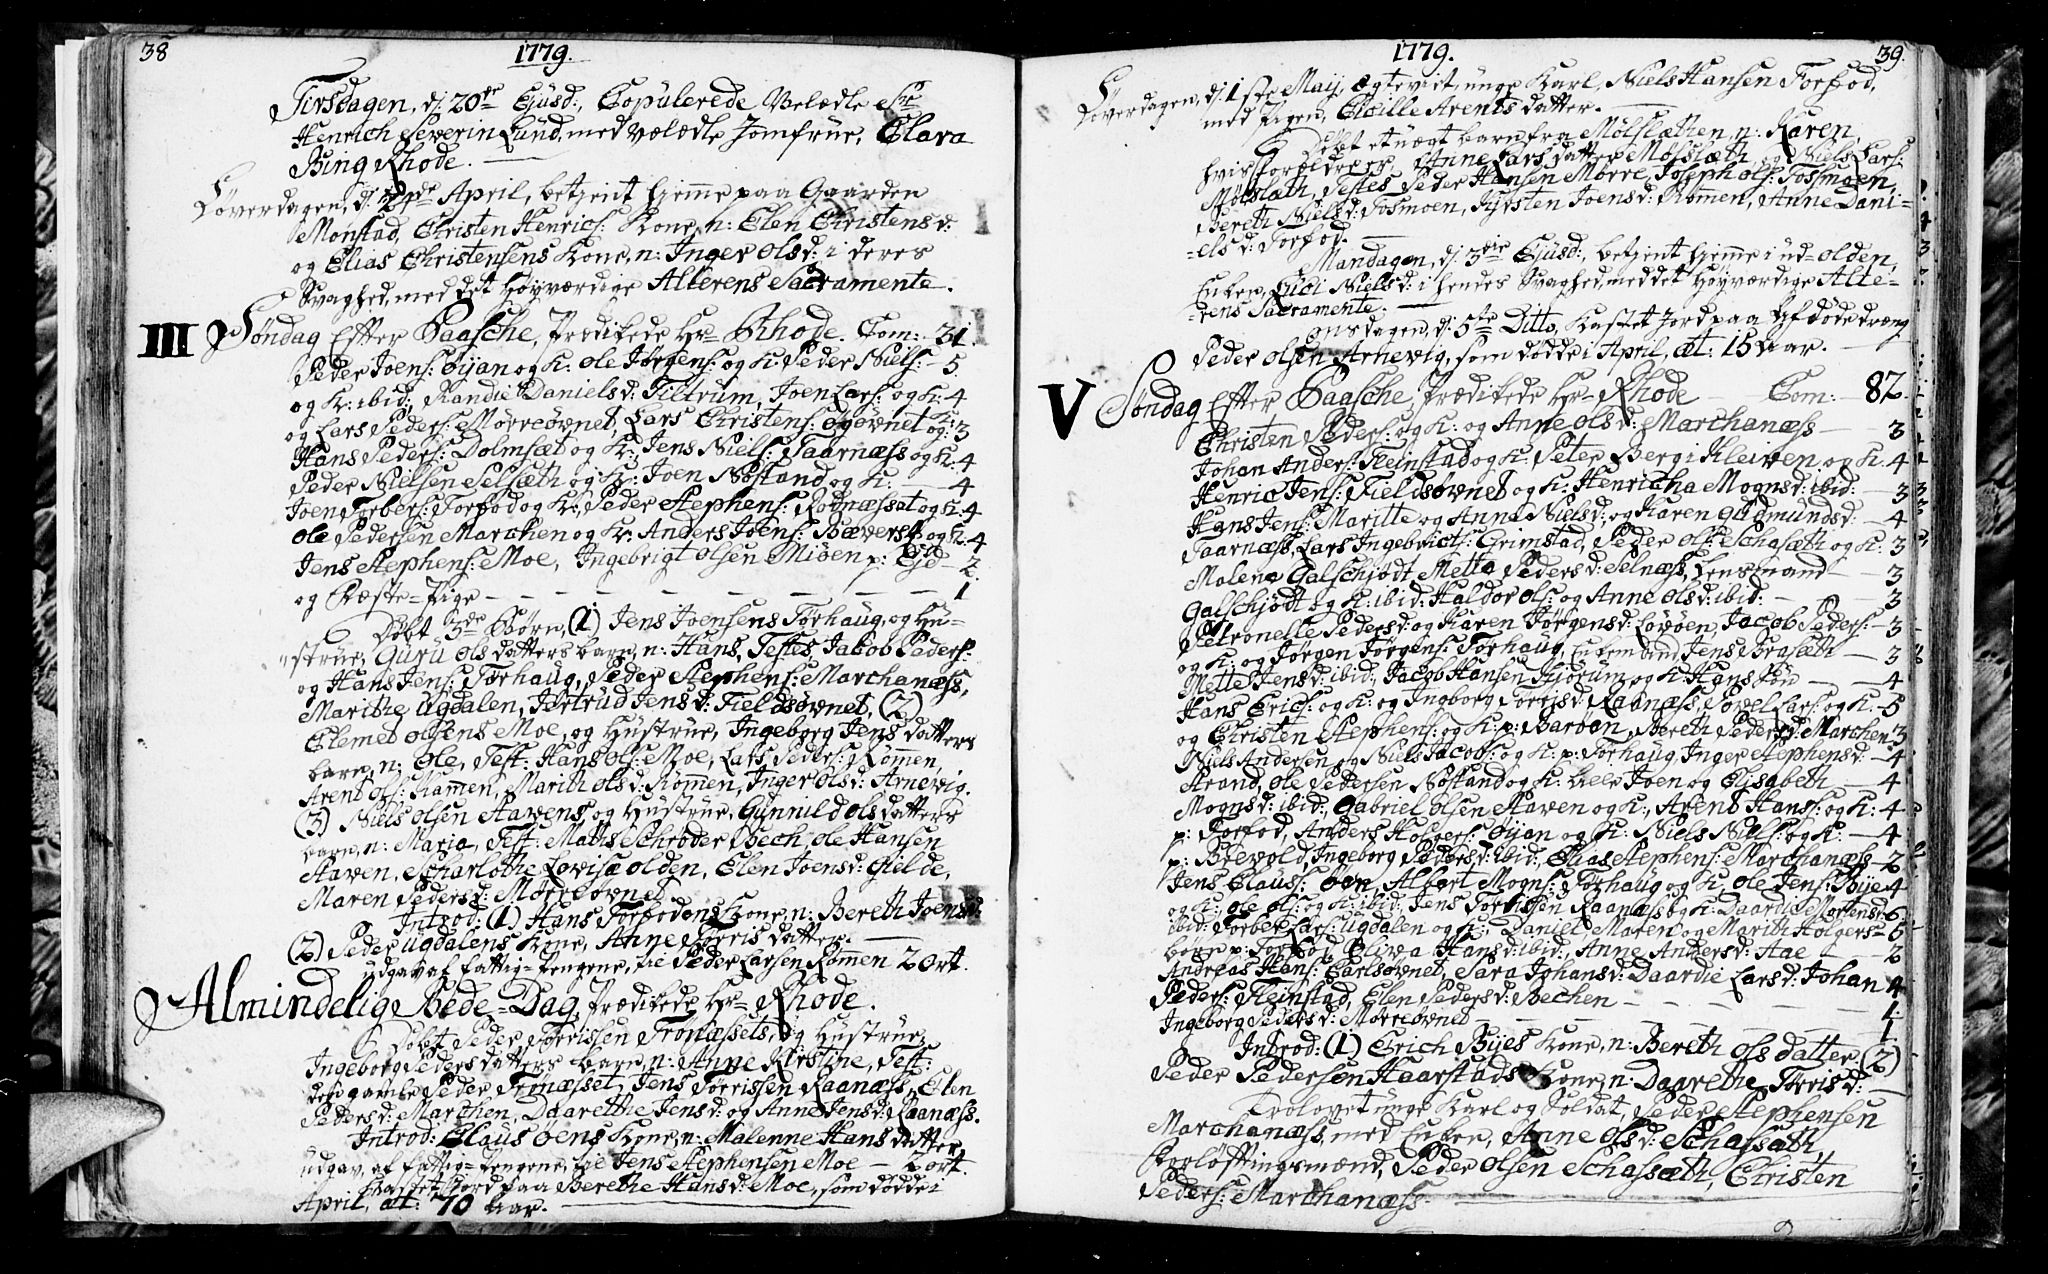 38
1779.
Tirsdagen, d: 20de Ejusd:, Copulerede Velædle Sr.
Henrich Severin Lund, med Velædle Jomfrue, Clara
Bing Rhode.
Løverdagen, d: 24de April, betient hjemme paa Gaarden
Monstad, Christen Henrics: Kone, n: Elen Christensd:
og Elias Christensens Kone, n: Inger Olsd: i deres
Svaghed, med det Høyværdige Alterens Sacramente.
III Søndag Efter Paasche, Prædikede Hr. Rhode. Com: 31.
Peder Joens: Øyan og K: Ole Jørgens: og K: Peder Niels: - 5
og K: ibid:, Randie Danielsd: Tiltrum, Joen Lars: og K: 4
og Lars Peders: Mørreøvnet, Lars Christens: Øyøvnet og K: 3
Hans Peders: Dolmsæt og K: Jens Niels: Taarnæss og K: 4
Peder Nielsen Selsæth og K: Joen Nøstand og K: - 4
Joen Torbers: Forfod og K:, Peder Stephens: Rodnæsset og K: 4
Ole Pedersen Marchen og K: Anders Joens: Bæverf: og K: 4
Jens Stephens: Moe, Ingebrigt Olsen Miøen p: Eje - 2.
og Fæste-Pige - 1
Døbt 3de Børn, (1) Jens Joensens Tørhaug, og Hu-
strue, Guru Ols datters barn, n: Hans, Testes Jakob Peders:
og Hans Jens: Tørhaug, Peder Stephens: Marchanæss,
Marithe Ugdalen, Jertrud Jensd: Fieldsøvnet, (2)
Clemet Olsens Moe, og Hustrue, Ingeborg Jens datters
barn, n: Ole, Test: Hans Ols: Moe, Lars Peders: Rømmen,
Arent Ols: Rammen, Marith Olsd: Rømmen, Inger Olsd: Arnevig.
(3) Niels Olsen Havens, og Hustrue, Gunnild Olsdatters
barn, n: Maria, Test: Mathis Schrøder Bech, Ole Hansen
Haven, Scharlothe Lovisa Olden, Elen Joensd: Gielde,
Maren Pedersd: Mørreøvnet.
Introd: (1) Hans Forfodens Kone, n: Bereth Joensd:
(2) Peder Ugdalens Kone, Anne Torris datter.
udgav af fattig-Pengene, til Peder Larsen Rømen 2 ort.
Almindelig Bede-Dag, Prædikede Hr. Rhode.
Døbt Peder Torrissen Tronæssets, og Hustrue,
Ingeborg Peders datters barn, n: Anne Kirstine, Test:
den gamle Peder Tronæsset, Jens Torrissen Raanæss, Elen
Pedersd: Marchen, Daarethe Jensd: og Anne Jensd: Raanæss.
Introd: Claus Øens Kone, n: Malenne Hans datter,
udgav, af fattig-Pengene, til Jens Stephensen Moe - 2 ort.
Kastet Jord paa Berethe Hansd: Moe, som døde i
April, æt: 70 Aar.
1779.
39.
Løverdagen, d: 1ste Maij, ægteviet, unge Karl, Niels Hansen Forfod,
med Pigen, Arents datter.
Døbt et uægt barn fra Mølslæthen, n: Karen,
hvis forældre er, Anne Lars datter Mølslæth, og Niels Lars:
Mølslæth, Testes Peder Hansen Morre, Joseph Ols: Fosmoen,
Bereth Nielsd: Fosmoen, Kirsten Joensd: Rømen, Anne Dani-
elsd: Forfod.
Mandagen, d: 3die Ejusd:, betient hjemme i ud-olden,
Enken, Nielsd: i hendes Svaghed, med det Høyværdige Alte-
rens Sacramente.
Onsdagen, d: 5te Ditto, Kastet Jord paa Afdøde dræng
Peder Olsen Arnevig, som døde i April, æt: 15 Aar.
V Søndag Efter Paasche, Prædikede Hr. Rhode - Com: - 82.
Christen Peders: og K: og Anne Olsd: Marchanæss - 3
Johan Anders: Steinstad og K: Peter Berg i Kleiven og K: 4
Henric Jens: Fieldsøvnet og K: Henricha Mognsd: ibid: - 3
Hans Jens: Maritte og Anne Nielsd: og Karen Gudmundsd: - 4
Taarnæss, Lars Ingebricts: Grimstad, Peder Ols: Schasæth og K: 3
Malena Galschjødt, Metta Pedersd: Selnæss, Lensmand - 3
Galschjødt og K: ibid: Haldor Ols: og Anne Olsd: ibid: - 3
Petronelle Pedersd: og Karen Jørgensd: Lovøen, Jacob Peders: - 3
og K: og Jørgen Jørgens: Tørhaug, Enkemand Jens Brasæth - 3
Mette Jensd: ibid:, Jacob Hansen Kjørum og K: Hans Søn - 4
Hans Erics: og K: og Ingeborg Torrisd: Raanæss, Povel Lars: og K: - 5
og Christen Stephens: og K: p: Baroen, Bereth Pedersd: Marchen 3
Niels Andersen og Niels Jacobs: og K: p: Tørhaug, Inger Stephensd: - 4
Strand, Ole Pedersen Nøstand og K: Joen og Elisabeth - 4
Mognsd: ibid:, Gabriel Olsen Haven og K:, Arent Hans: og K: 4
p: Forfod, Anders Holgers: Øyan og K: Niels Niels: og K: - 4
p: Bievold, Ingeborg Pedersd: ibid:, Elias Stephens: Marchanæss - 2
Jens Clauss: Øen, Albert Mogns: Tørhaug og K:, Ole Jens: Bye 4
og K:, Ole Ols: og K: ibid:, Jens Torrissen Raanæss og K: Daardie Mortensd: 6
ibid: Torber Lars: Ugdalen og K:, Daniel Maren og Marith Holgers - 5
børn p: Forfod, Oliva Hansd: ibid:, Anne Andersd: Hae - 2
Andreas Hans: Carlsøvnet, Sara Johansd: Daardie Larsd: Johan 4
Peders: Steinstad, Elen Pedersd: Bechen - 1.
Ingeborg Pedersd: Mørreøvnet - 1.
Introd: (1) Erich Byes Kone, n: Bereth Ols datter, (2)
Peder Pedersen Haarstads Kone, n: Daarethe Torrisd:
Trolovet unge Karl og Soldat, Peder Stephensen
Marchanæss, med Enken, Anne Olsd: Schassæth,
Forløftingsmænd, Peder Olsen Schassæth, Christen
Peders: Marchanæss.